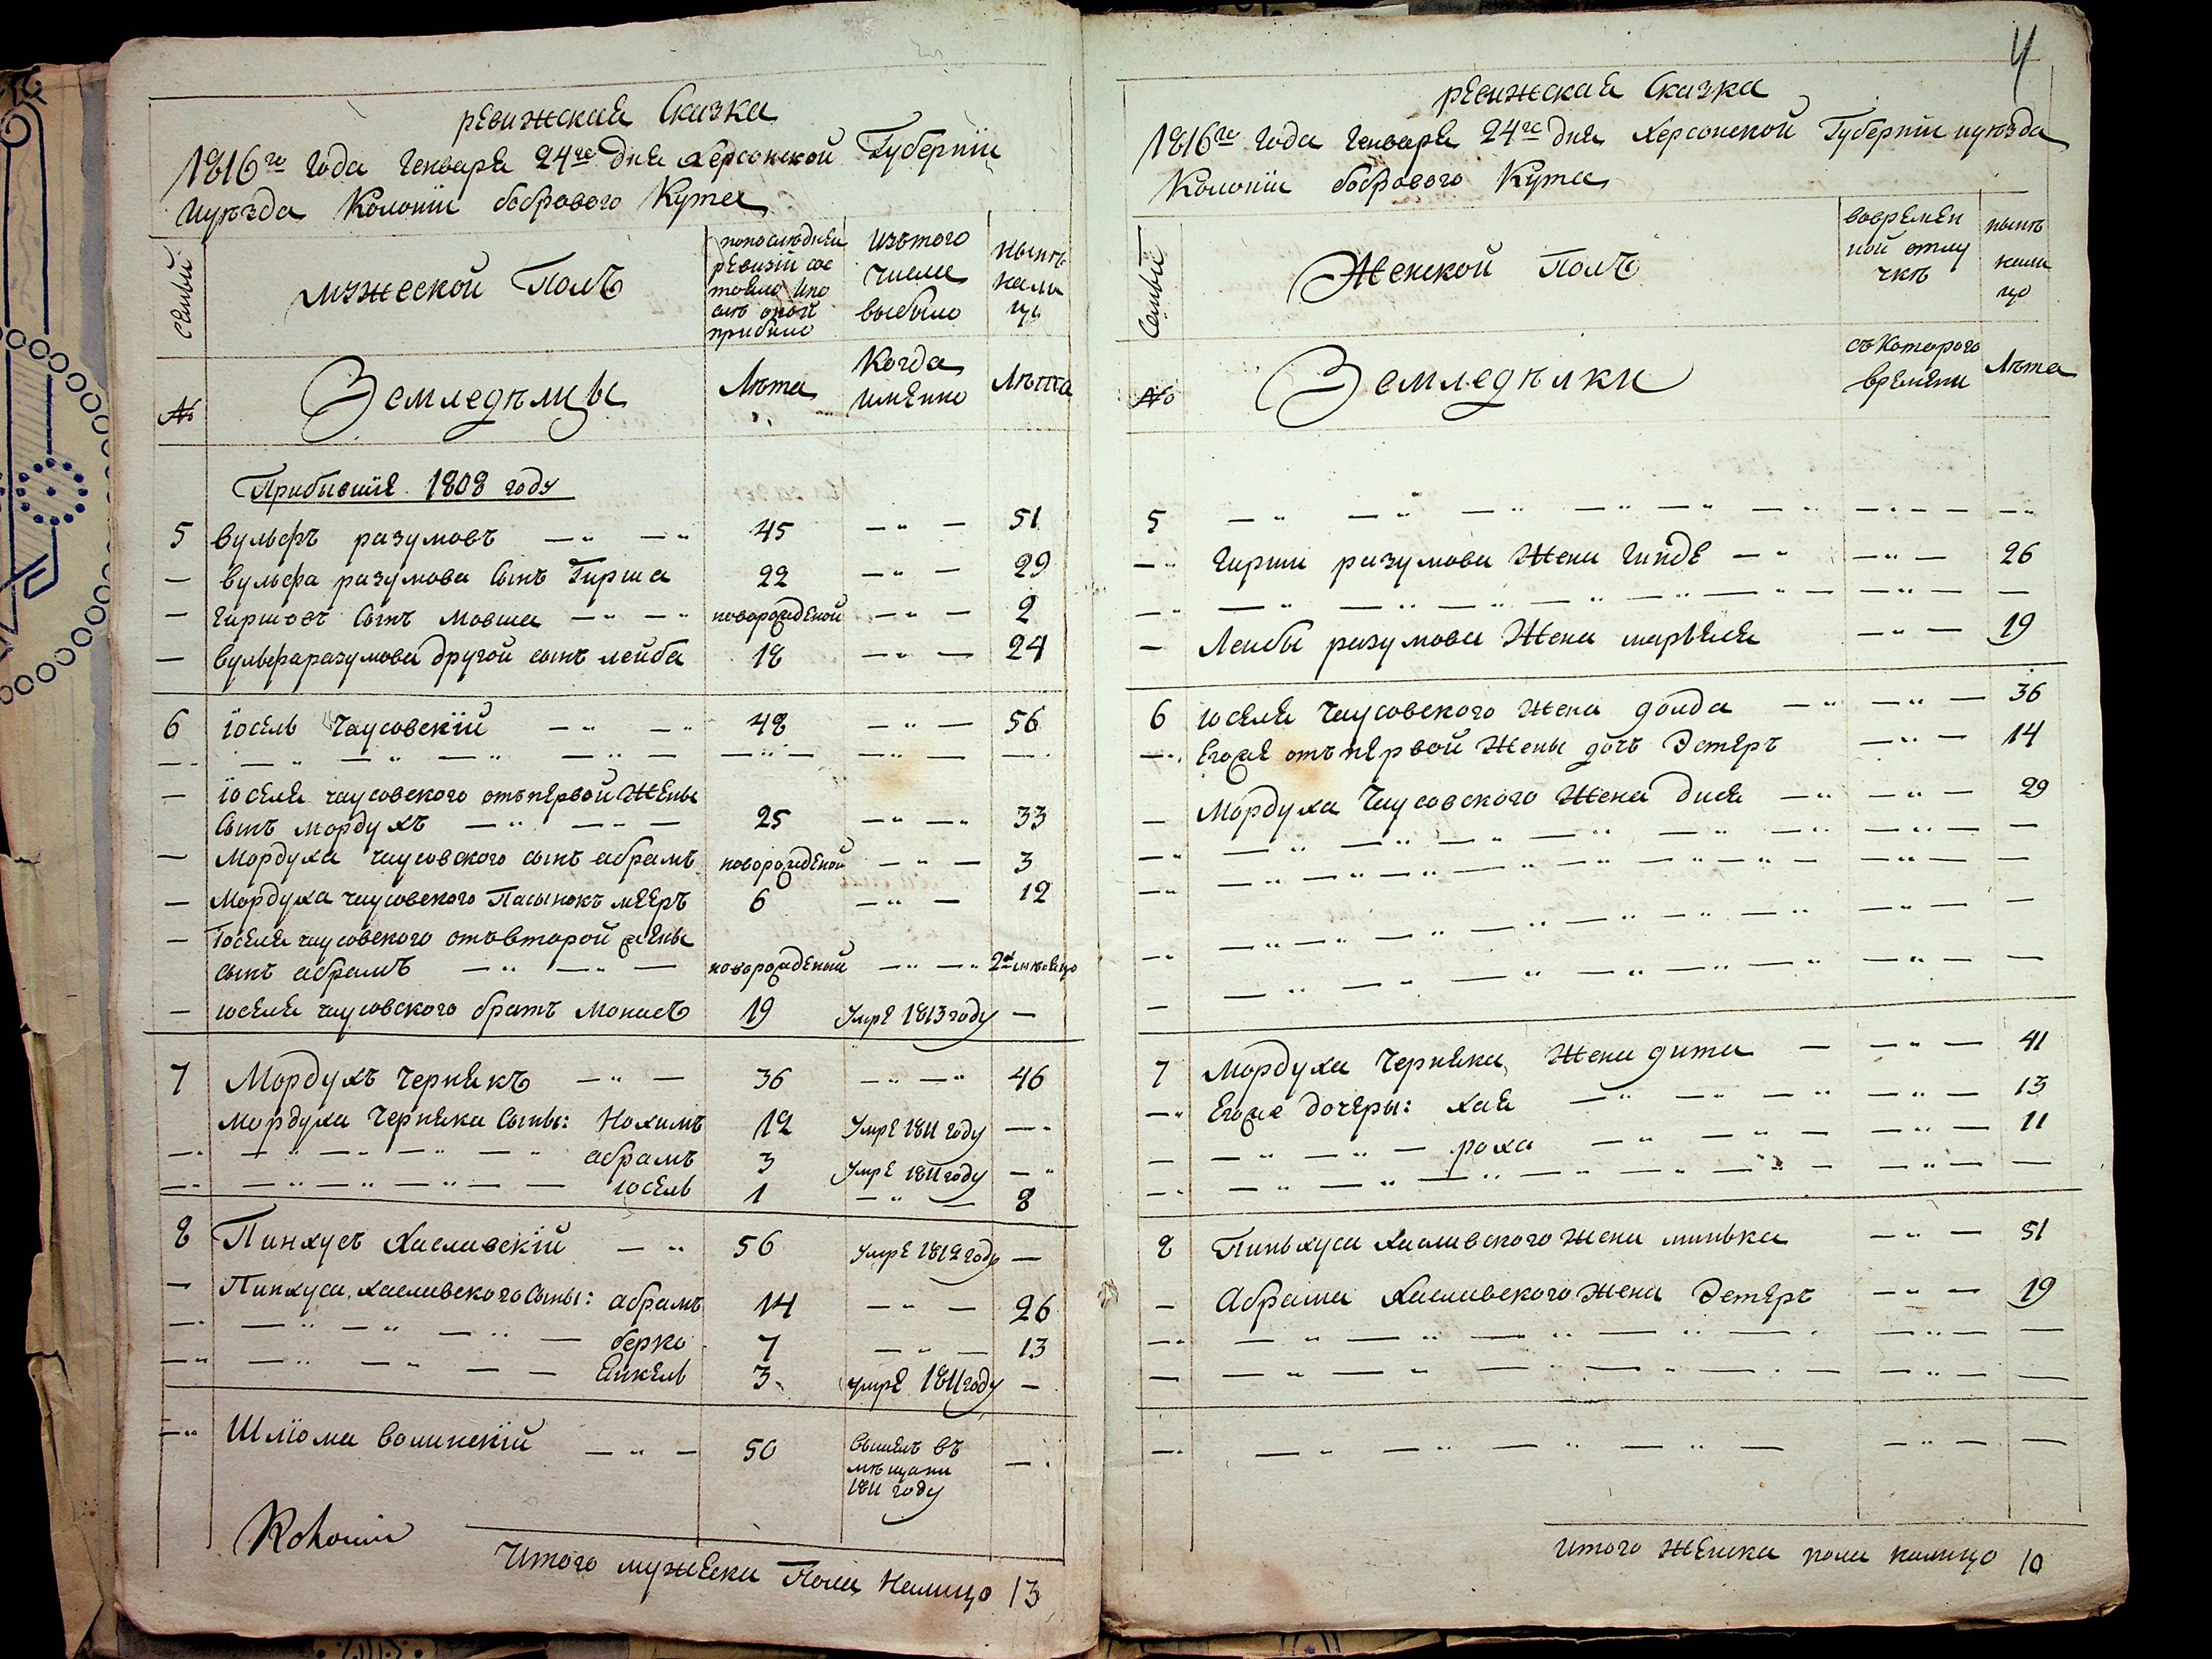 ревижская Сказка
1816го года Генваря 24го дня Херсонской Губернiи
иуѣзда Колонiи бобрового Кута
семьи
мужеской Полъ
попослѣдней
ревизiи сос
тояло ипо
слѣ оной
прибыло
изътого
числа
выбыло
нынѣ
нали
цо
№
Земледѣлцы
Лѣта
Когда
имянно
Лѣта
Прибывшiя 1808 году
5 вульфъ разумовъ —„ —„ 45 —„— 51
— вульфа разумова сынъ Гирша 22 —„— 29
— гиршовъ сынъ мовша —„ —„ новорожденой —„— 2
— вульфаразумова другой сынъ лейба 18 —„— 24
6 iосель Чаусовскiй —„ —„ 48 —„— 56
—„ —„ —„ —„ —„— —„— —„— —„
— iоселя чаусовского отъпервой Жены
сынъ мордухъ —„ —„— 25 —„—„ 33
— Мордуха чаусовского сынъ абрамъ новорожденой —„— 3
— Мордуха чаусовского Пасынокъ мееръ 6 —„— 12
— Iоселя чаусовского отъвторой жены
сынъ абрамъ —„ —„— новорожденой —„—„ 2 мѣсяцо
— iоселя чаусовского братъ Монасъ 19 Умре 1813 году —
7 Мордухъ чернякъ —„— 36 —„—„ 46
Мордуха Черняка Сыны: Нохимъ 12 Умре 1811 году —„
—„ —„ —„ —„ —„ абрамъ 3 Умре 1811 году —„
—„ —„ —„ —„ — — iосель 1 —„— 8
8 Пинхусъ Хаславскiй —„ 56 Умре 1812 году —
— Пинхуса хаславского Сыны: абрамъ 14 —„— 26
—„ —„ —„ —„ — берко 7 —„— 13
—„ —„ —„ — — Янкель 3 умре 1811 году —
—„ Шлiома волинскiй —„— 50 вышелъ въ
мѣщани
1811 году —„
Итого мужеска Пола Налицо 13
4
ревижская Сказка
1816го года Генваря 24го дня Херсонской Губернiи иуѣзда
Колонiи бобрового Кута
Семьи
Женской Полъ
вовремян
ной отлу
чкѣ
нынѣ
нали
цо
№
Земледѣлки
съ Которого
времени
Лѣта
5 —„ —„ —„ —„ —„ —„ —„— —„
—„ гирши разумова Жена Гинде —„ —„— 26
—„ —„ —„ —„ —„ —„ —„— —„— —
— Лейбы разумова Жена марьяся —„— 19
6 iоселя Чаусовского Жена голда —„ —„— 36
—„ Егоже отъпервой Жены дочъ Эстеръ —„— 14
— Мордуха Чаусовского Жена дися —„ —„— 29
—„ —„ —„ —„ —„ —„ —„ —„— —
—„ —„ —„ —„ —„ —„ —„— —„— —
—„ —„ —„ —„ —„ —„ —„ —„— —
— —„ —„ —„ —„ —„ —„ —„— —
7 Мордуха Черняка Жена дита — —„— 41
—„ Егоже дочеры: хая —„ —„ —„ —„— 13
— —„ —„— роха —„ —„— —„— 11
—„ —„ —„ —„ —„ —„ —„— —„— —
8 Пиньхуса хаславского Жена минька —„— 51
— Абрама Хаславского Жена Эстеръ —„— 19
—„ —„ —„ —„ —„ —„ —„ —„— —
— —„ —„ —„ —„ —„— —„— —
—„ —„ —„ —„ —„ — —„— —
итого Женска пола налицо 10